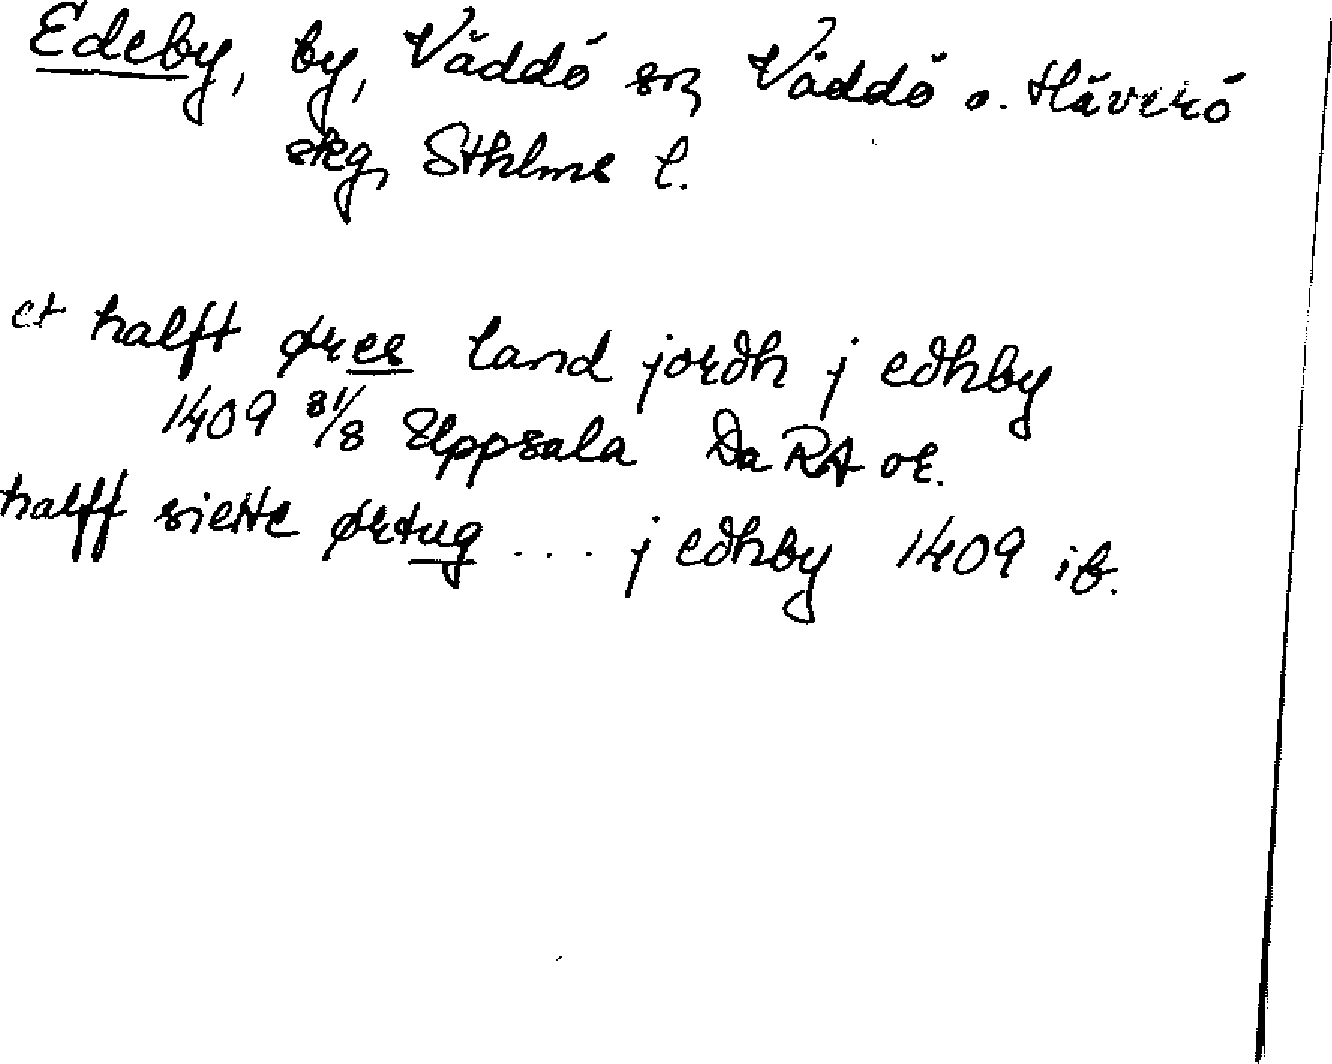 Edeby, by, Väddö sn, Väddö o. Häverö
skg, Sthlms l.
et halft øres land jordh j edhby
1409 31/8 Uppsala DaRA or.
halff siette ørtug ... j edhby 1409 ib.